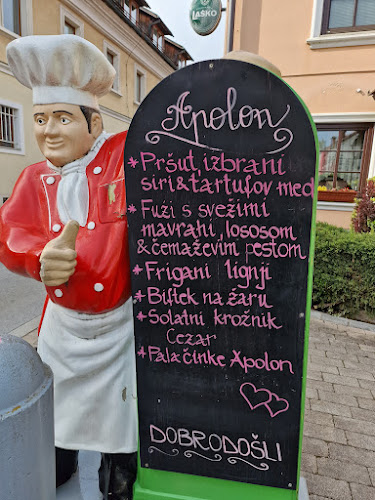 LAŠKO
Apolon
* Pršut, izbrani
siri & tartufov med
* Fuži s svežimi
mavrahi, lososom
& čemaževim pestom
* Frigani lignji
* Biftek na žaru
* Solatni krožnik
Cezar
* Palačinke Apolon
DOBRODOŠLI